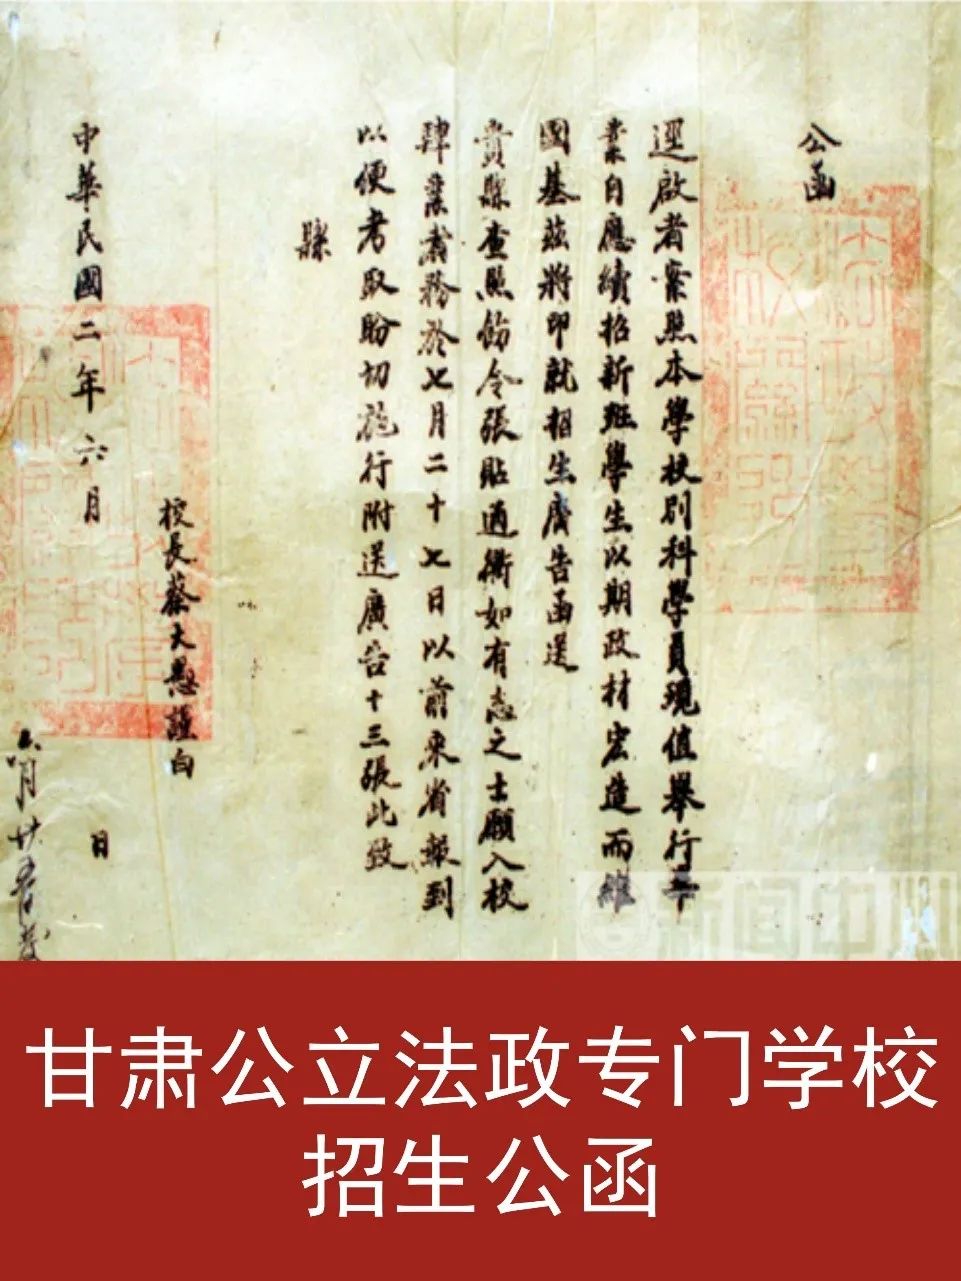 公函
逕啟者案照本學校別科學員現值舉行畢
業自應續招新班學生以期政材宏造而維
國基茲將印就招生廣告函送
貴縣查照飭令張貼通衢如有志之士願入校
肄業者務於七月二十七日以前來省報到
以便考取盼切施行附送廣告十三張此致
縣
校長蔡大愚謹白
中華民國二年六月 日
六月廿
新闻中
甘肃公立法政专门学校
招生公函